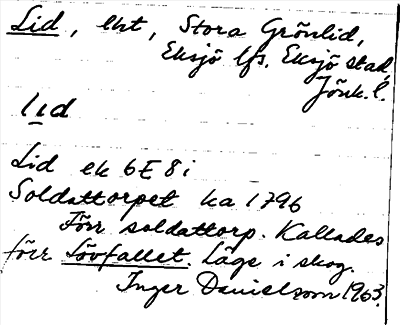 Lid, ekt, Stora Grönlid,
Eksjö lfs. Eksjö stad,
Jönk. l.
lid
Lid ek 6E 8i
Soldattorpet ka 1796
Förr soldattorp. Kallades
förr Lövfallet. Läge i skog.
Inger Danielsson 1963.